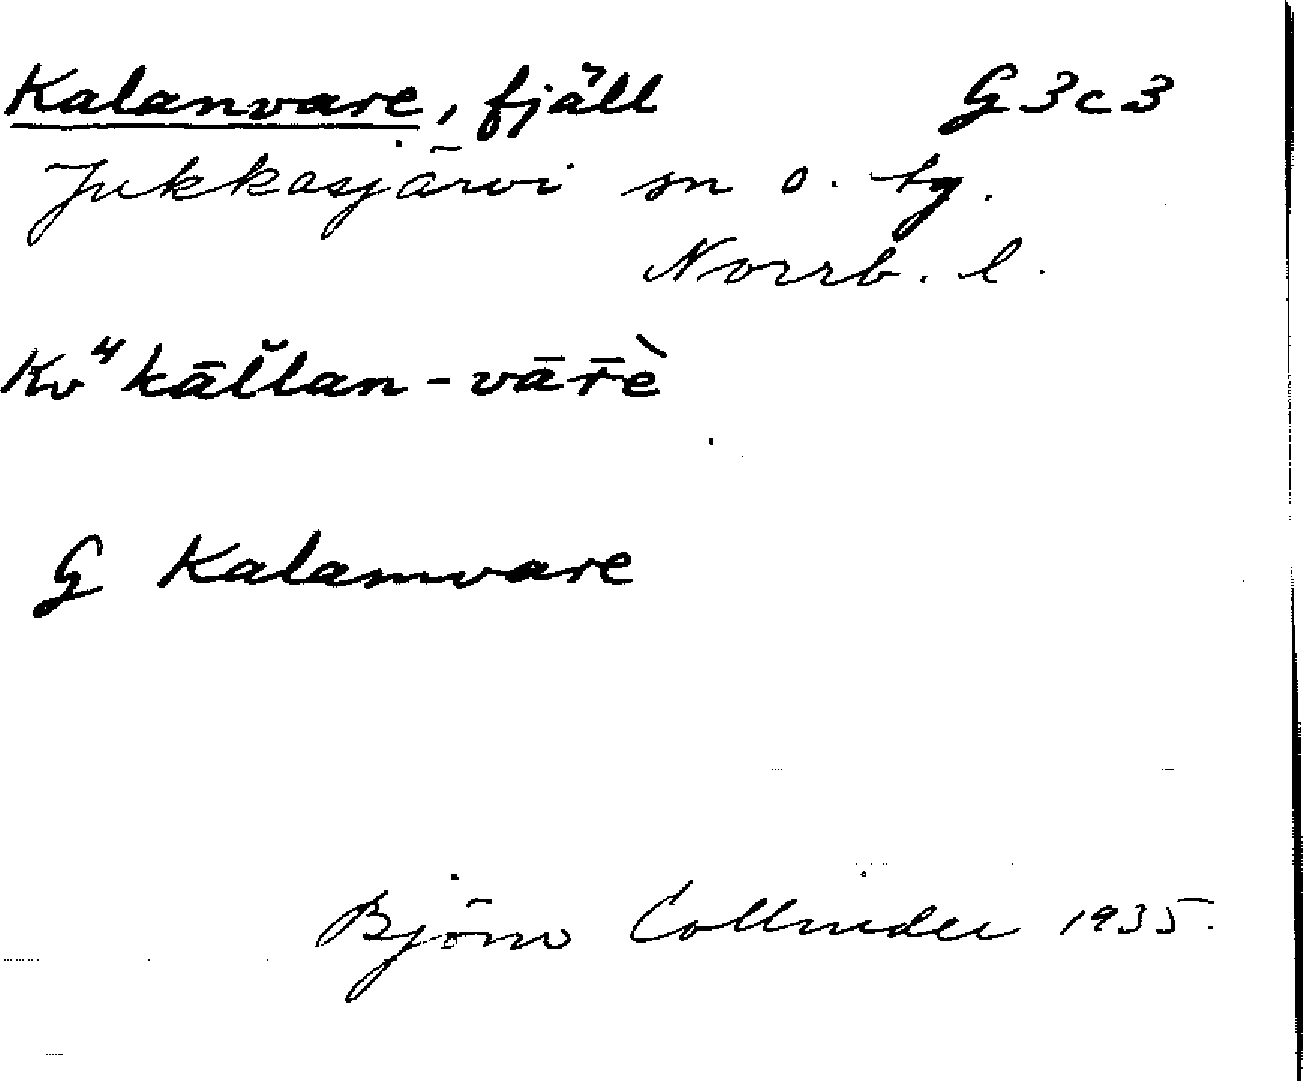 Kalanvare, fjäll G3c3
Jukkasjärvi sn o. tg.
Norrb. l.
Kv" kāl̆lan-vār̄è
G Kalamvare
Björn Collinder 1935.